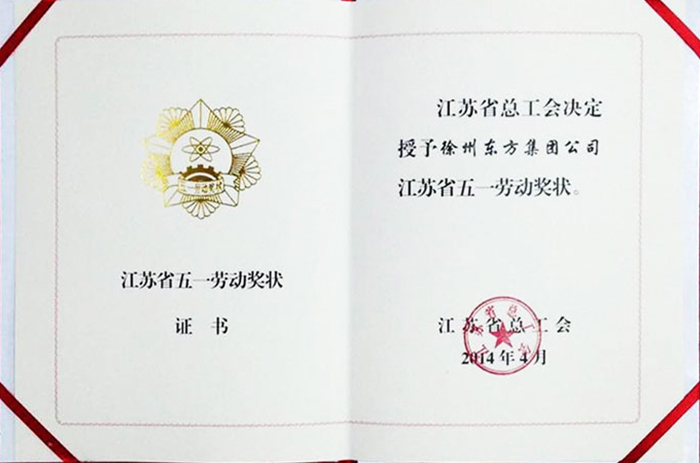 五一劳动奖状
江苏省五一劳动奖状
证书
江苏省总工会决定
授予徐州东方集团公司
江苏省五一劳动奖状。
江苏省总工会
2014年4月